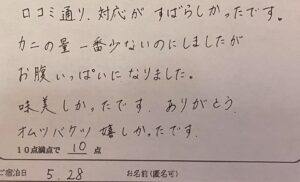 口コミ通り、対応がすばらしかったです。
カニの量一番少ないのにしましたが
お腹いっぱいになりました。
味美しかったです。ありがとう。
オムツバケツ嬉しかったです。
10点満点で 10 点
ご宿泊日 5.28 お名前(匿名可)